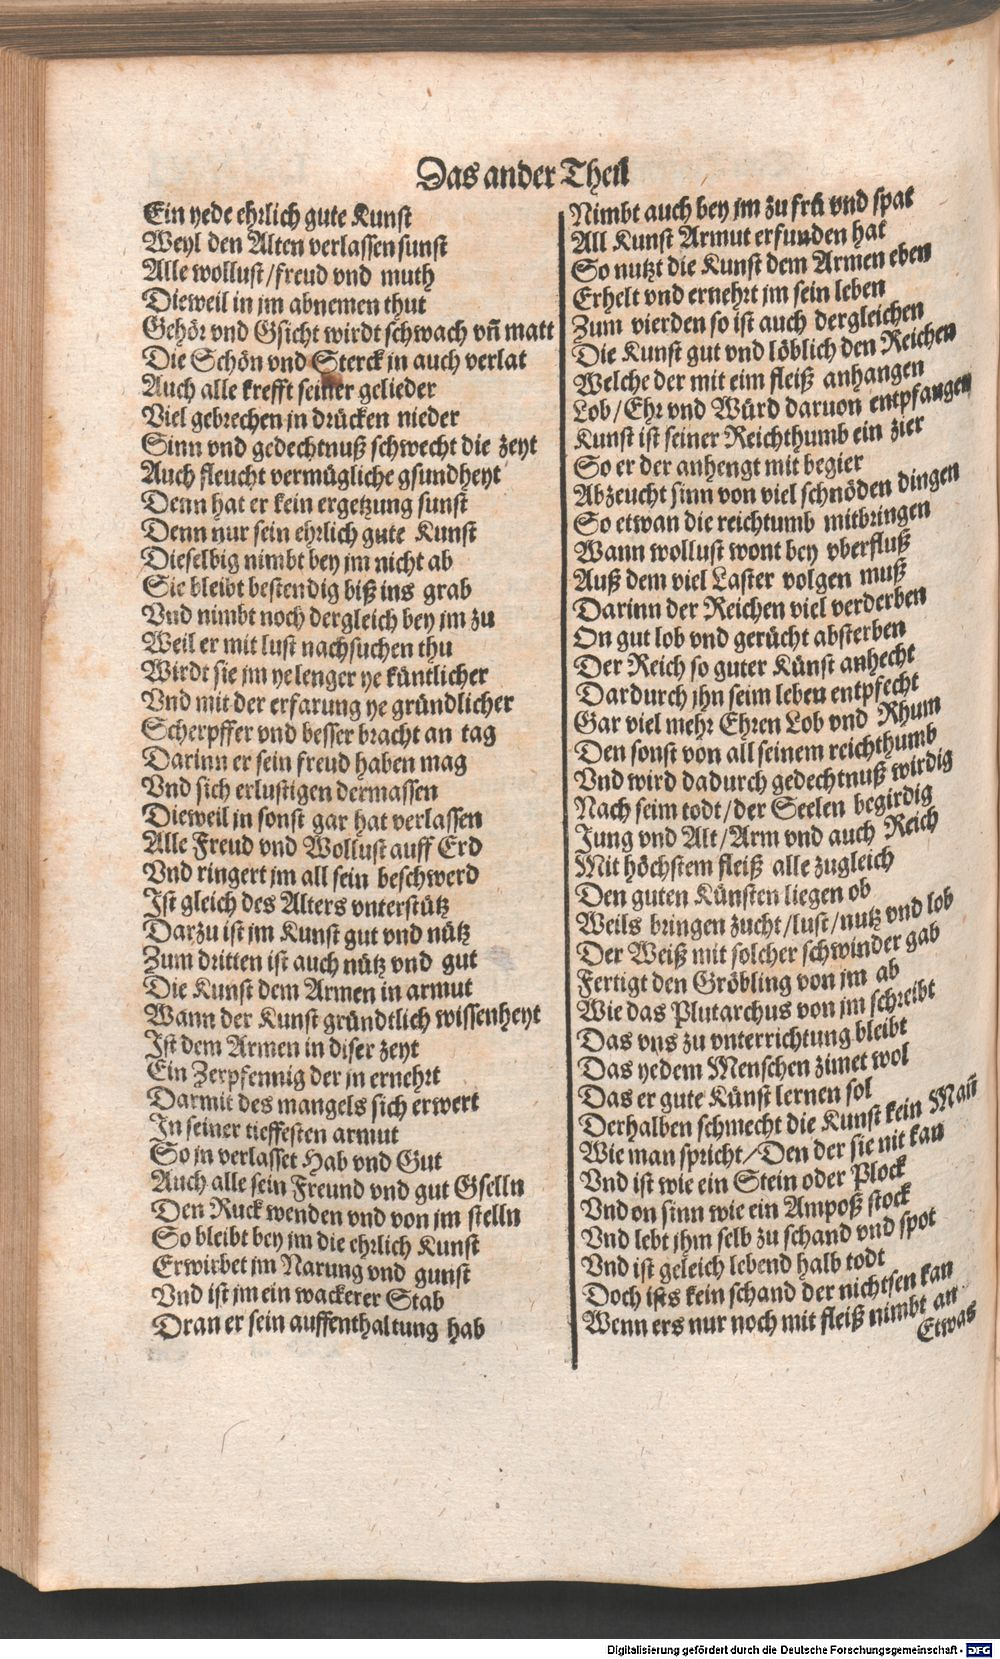 Das ander Theil
Ein yede ehrlich gute Kunst
Weyl den Alten verlassen sunst
Alle wollust/freud vnd muth
Dieweil in jm abnemen thut
Gehör vnd Gsicht wirdt schwach vñ matt
Die Schön vnd Sterck jn auch verlat
Auch alle krefft seiner gelieder
Viel gebrechen jn drücken nieder
Sinn vnd gedechtnuß schwecht die zeyt
Auch fleucht vermügliche gsundheyt
Denn hat er kein ergetzung sunst
Denn nur sein ehrlich gute Kunst
Dieselbig nimbt bey jm nicht ab
Sie bleibt bestendig biß ins grab
Vnd nimbt noch dergleich bey jm zu
Weil er mit lust nachsuchen thu
Wirdt sie jm ye lenger ye küntlicher
Vnd mit der erfarung ye gründlicher
Scherpffer vnd besser bracht an tag
Darinn er sein freud haben mag
Vnd sich erlustigen dermassen
Dieweil jn sonst gar hat verlassen
Alle Freud vnd Wollust auff Erd
Vnd ringert jm all sein beschwerd
Ist gleich des Alters vnterstütz
Darzu ist jm Kunst gut vnd nütz
Zum dritten ist auch nütz vnd gut
Die Kunst dem Armen in armut
Wann der Kunst gründtlich wissenheyt
Ist dem Armen in diser zeyt
Ein Zerpfennig der jn ernehrt
Darmit des mangels sich erwert
In seiner tieffesten armut
So jn verlasset Hab vnd Gut
Auch alle sein Freund vnd gut Gselln
Den Ruck wenden vnd von jm stelln
So bleibt bey jm die ehrlich Kunst
Erwirbet jm Narung vnd gunst
Vnd ist jm ein wackerer Stab
Dran er sein auffenthaltung hab
Nimbt auch bey jm zu frü vnd spat
All Kunst Armut erfunden hat
So nutzt die Kunst dem Armen eben
Erhelt vnd ernehrt jm sein leben
Zum vierden so ist auch dergleichen
Die Kunst gut vnd löblich den Reichen
Welche der mit eim fleiß anhangen
Lob/Ehr vnd Würd daruon entpfangen
Kunst ist seiner Reichthumb ein zier
So er der anhengt mit begier
Abzeucht sinn von viel schnöden dingen
So etwan die reichtumb mitbringen
Wann wollust wont bey vberfluß
Auß dem viel Laster volgen muß
Darinn der Reichen viel verderben
On gut lob vnd gerücht absterben
Der Reich so guter Künst anhecht
Dardurch jhn seim leben entpfecht
Gar viel mehr Ehren Lob vnd Rhum
Den sonst von all seinem reichthumb
Vnd wird dadurch gedechtnuß wirdig
Nach seim todt/der Seelen begirdig
Jung vnd Alt/Arm vnd auch Reich
Mit höchstem fleiß alle zugleich
Den guten Künsten liegen ob
Weils bringen zucht/lust/nutz vnd lob
Der Weiß mit solcher schwinder gab
Fertigt den Gröbling von jm ab
Wie das Plutarchus von jm schreibt
Das vns zu vnterrichtung bleibt
Das yedem Menschen zimet wol
Das er gute Künst lernen sol
Derhalben schmecht die Kunst kein Mañ
Wie man spricht/Den der sie nit kan
Vnd ist wie ein Stein oder Plock
Vnd on sinn wie ein Ampoß stock
Vnd lebt jhm selb zu schand vnd spot
Vnd ist geleich lebend halb todt
Doch ists kein schand der nichtsen kan
Wenn ers nur noch mit fleiß nimbt an
Etwas
Digitalisierung gefördert durch die Deutsche Forschungsgemeinschaft - DFG